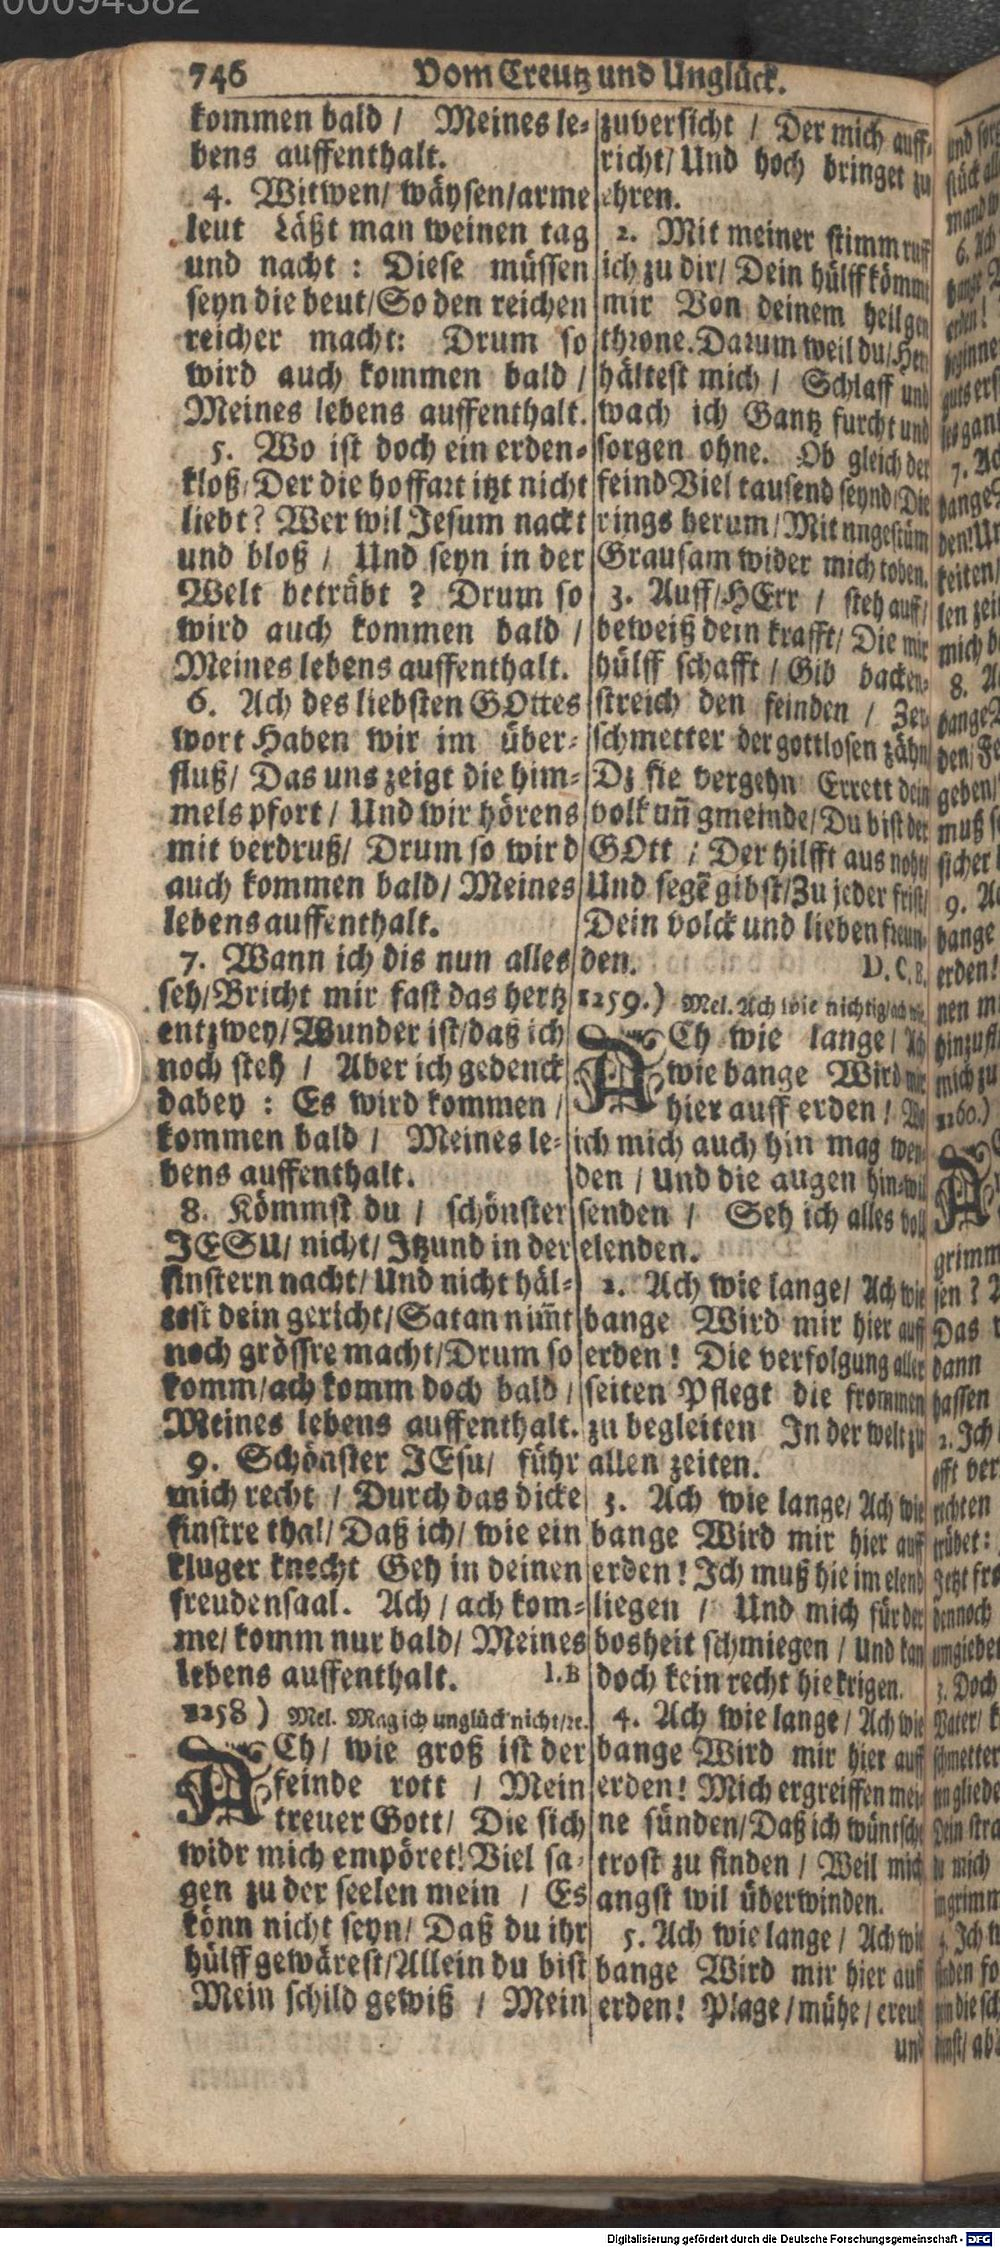 746 Vom Creutz und Unglück.
kommen bald / Meines le-
bens auffenthalt.
4. Witwen/ wäysen/arme
leut Läßt man weinen tag
und nacht : Diese müssen
seyn die beut/So den reichen
reicher macht: Drum so
wird auch kommen bald /
Meines lebens auffenthalt.
5. Wo ist doch ein erden-
kloß/Der die hoffart itzt nicht
liebt? Wer wil Jesum nackt
und bloß / Und seyn in der
Welt betrübt ? Drum so
wird auch kommen bald /
Meines lebens auffenthalt.
6. Ach des liebsten GOttes
wort Haben wir im über-
fluß/ Das uns zeigt die him-
mels pfort / Und wir hörens
mit verdruß/ Drum so wird
auch kommen bald/ Meines
lebens auffenthalt.
7. Wann ich dis nun alles
seh/Bricht mir fast das hertz
entzwey/Wunder ist/daß ich
noch steh / Aber ich gedenck
dabey : Es wird kommen /
kommen bald / Meines le-
bens auffenthalt.
8. Kömmst du / schönster
JESU/ nicht/ Jtzund in der
finstern nacht/ Und nicht häl-
test dein gericht/Satan nim̃t
noch grössre macht/Drum so
komm/ach komm doch bald /
Meines lebens auffenthalt.
9. Schönster JEsu/ führ
mich recht / Durch das dicke
finstre thal/ Daß ich/ wie ein
kluger knecht Geh in deinen
freudensaal. Ach / ach kom-
me/ komm nur bald/ Meines
lebens auffenthalt. I.B
1258 ) Mel. Mag ich unglück nicht/ꝛc.
ACh/ wie groß ist der
feinde rott / Mein
treuer Gott/ Die sich
widr mich empöret! Viel sa-
gen zu der seelen mein / Es
könn nicht seyn/ Daß du ihr
hülff gewärest/Allein du bist
Mein schild gewiß / Mein
zuversicht / Der mich auff-
richt/ Und hoch bringet zu
ehren.
2. Mit meiner stimm ruff
ich zu dir/ Dein hülff kömmt
mir Von deinem heilgen
throne. Darum weil du/Herr
hältest mich / Schlaff und
wach ich Gantz furcht und
sorgen ohne. Ob gleich der
feind Viel tausend seynd/Die
rings herum/Mit nngestüm
Grausam wider mich toben.
3. Auff/HErr / steh auff/
beweiß dein krafft/ Die mir
hülff schafft / Gib backen-
streich den feinden / Zer-
schmetter der gottlosen zähn
Dz sie vergehn Errett dein
volk un̄ gmeinde/Du bist der
GOtt / Der hilfft aus noht/
Und segē gibst/Zu jeder frist/
Dein volck und lieben freun-
den. D.C.B.
1259.) Mel. Ach wie nichtig/ach wie.
ACh wie lange/ Ach
wie bange Wird mir
hier auff erden ! Wo
ich mich auch hin mag wen-
den / Und die augen hin-wil
senden / Seh ich alles voll
elenden.
2. Ach wie lange/ Ach wie
bange Wird mir hier auff
erden! Die verfolgung aller
seiten Pflegt die frommen
zu begleiten In der welt zu
allen zeiten.
3. Ach wie lange/ Ach wie
bange Wird mir hier auff
erden! Jch muß hie im elend
liegen / Und mich für der
bosheit schmiegen / Und kan
doch kein recht hie krigen.
4. Ach wie lange / Ach wie
bange Wird mir hier auff
erden! Mich ergreiffen mei-
ne sünden/Daß ich wüntsche
trost zu finden / Weil mich
angst wil überwinden.
5. Ach wie lange / Ach wie
bange Wird mir hier auff
erden! Plage/mühe/creutz
und
Digitalisierung gefördert durch die Deutsche Forschungsgemeinschaft - DFG